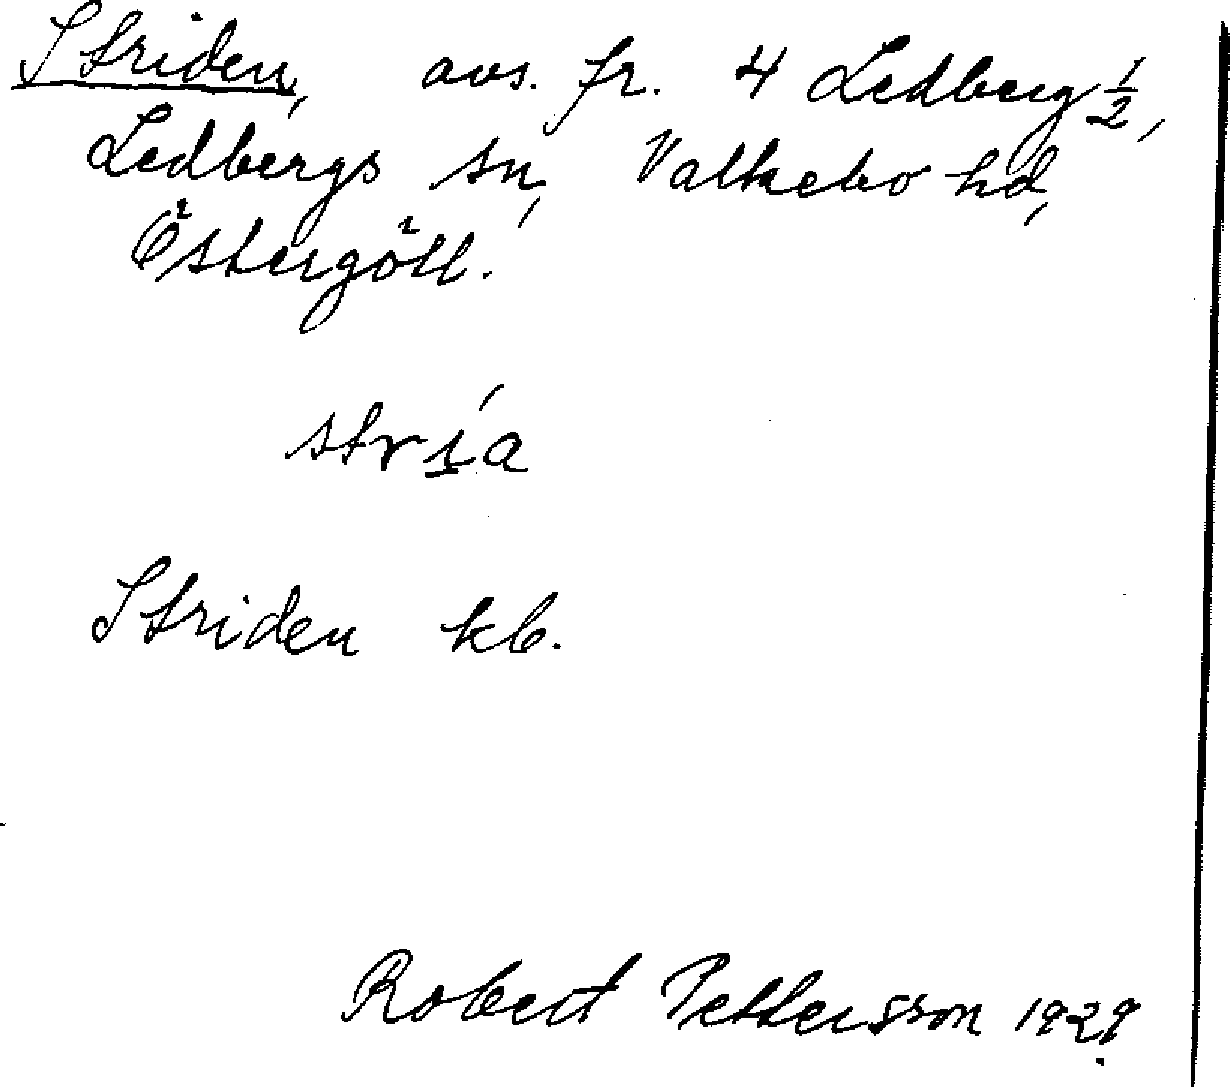 Striden, avs. fr. 4 Ledberg 1/2,
Ledbergs sn, Valkebo hd,
Östergötl.
strí̲a
Striden kb.
Robert Pettersson 1929